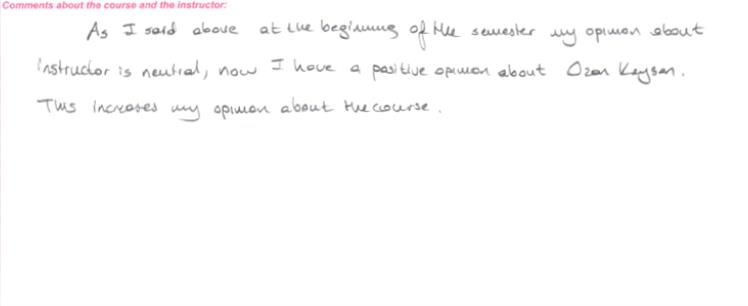 Comments about the course and the instructor:
As I said above at the beginning of the semester my opinion about
instructor is neutral, now I have a positive opinion about Ozan Keysan.
This increases my opinion about the course.